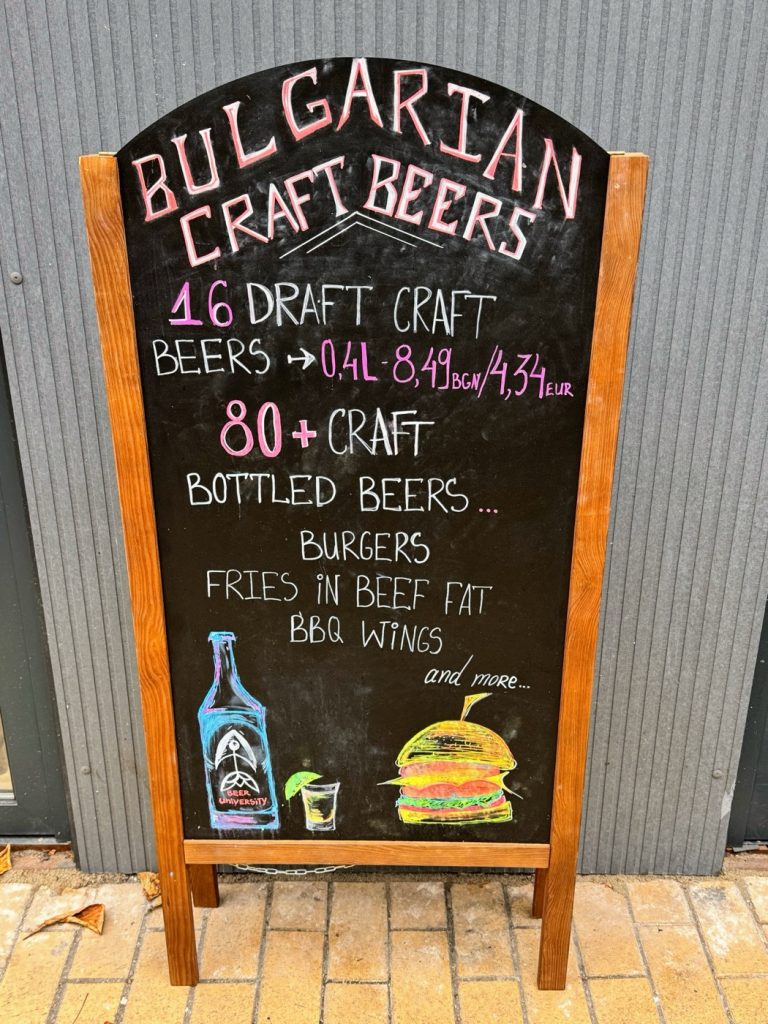 BULGARIAN
CRAFT BEERS
16 DRAFT CRAFT
BEERS → 0,4L - 8,49BGN/4,34EUR
80+ CRAFT
BOTTLED BEERS...
BURGERS
FRIES iN BEEF FAT
BBQ WiNGS
and more...
BEER
UNIVERSITY